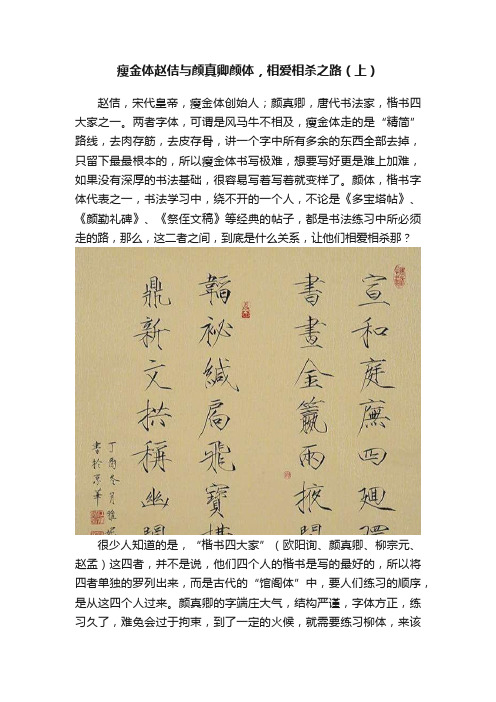 瘦金体赵佶与颜真卿颜体，相爱相杀之路（上）
赵佶，宋代皇帝，瘦金体创始人；颜真卿，唐代书法家，楷书四
大家之一。两者字体，可谓是风马牛不相及，瘦金体走的是“精简”
路线，去肉存筋，去皮存骨，讲一个字中所有多余的东西全部去掉，
只留下最最根本的，所以瘦金体书写极难，想要写好更是难上加难，
如果没有深厚的书法基础，很容易写着写着就变样了。颜体，楷书字
体代表之一，书法学习中，绕不开的一个人，不论是《多宝塔帖》、
《颜勤礼碑》、《祭侄文稿》等经典的帖子，都是书法练习中所必须
走的路，那么，这二者之间，到底是什么关系，让他们相爱相杀那？
宣和庭廡四迴環
書畫金籯兩掖
韜祕緘扃飛寶
鼎新文拱稱幽
丁酉冬月雅
書於京華
很少人知道的是，“楷书四大家”（欧阳询、颜真卿、柳宗元、
赵孟）这四者，并不是说，他们四个人的楷书是写的最好的，所以将
四者单独的罗列出来，而是古代的“馆阁体”中，要人们练习的顺序，
是从这四个人过来。颜真卿的字端庄大气，结构严谨，字体方正，练
习久了，难免会过于拘束，到了一定的火候，就需要练习柳体，来该